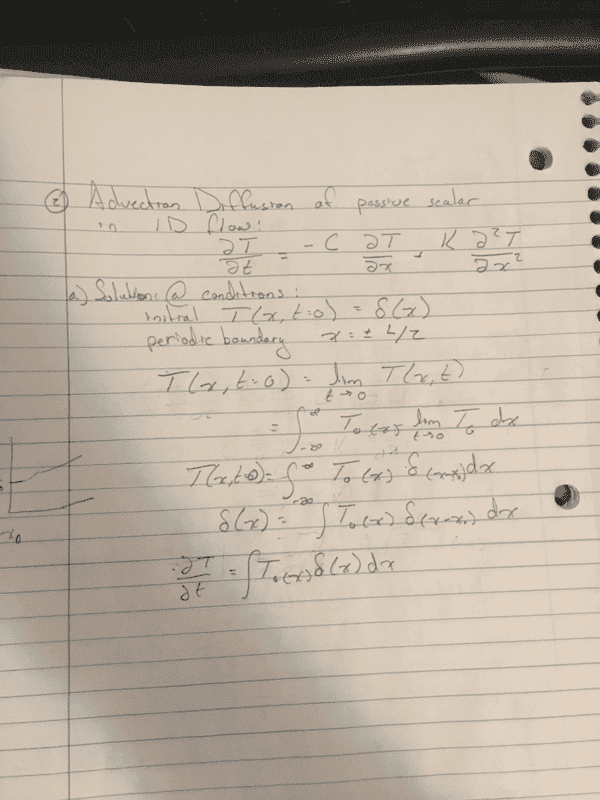 ② Advection Diffusion of passive scalar
in 1D flow:
∂T/∂t = -C ∂T/∂x + K ∂²T/∂x²
a) Solution @ conditions:
initial T(x, t=0) = δ(x)
periodic boundary x = ± L/2
T(x, t=0) = lim t→0 T(x,t)
= ∫_-∞^∞ T₀(x) lim t→0 T₀ dx
T(x,t=0) = ∫_-∞^∞ T₀(x) δ(x-x₀) dx
δ(x) = ∫ T₀(x) δ(x-x₀) dx
∂T/∂t = ∫T₀(x) δ(x) dx